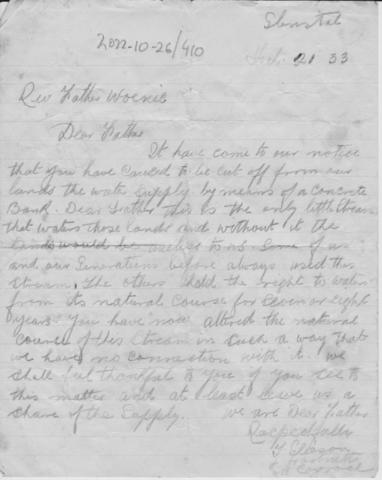 2022-10-26/410
Feb. 21 33
Rev Father
Dear Father
It have come to our notice
that you have caused to be cut off from our
lands the water supply by means of a Concrete
Bank. Dear Father this is the only little stream
that waters those lands and without it the
lands would be useless to us Some of us
and our Generations before always used this
stream. The others held the right to water
from its natural Course for seven or eight
years You have now altered the natural
Course of this Stream in Such a way that
we have no connection with it. We
shall feel thankful to you if you see to
this matter and at least give us a
share of the Supply. We are Dear Father
Respectfully
Gleason